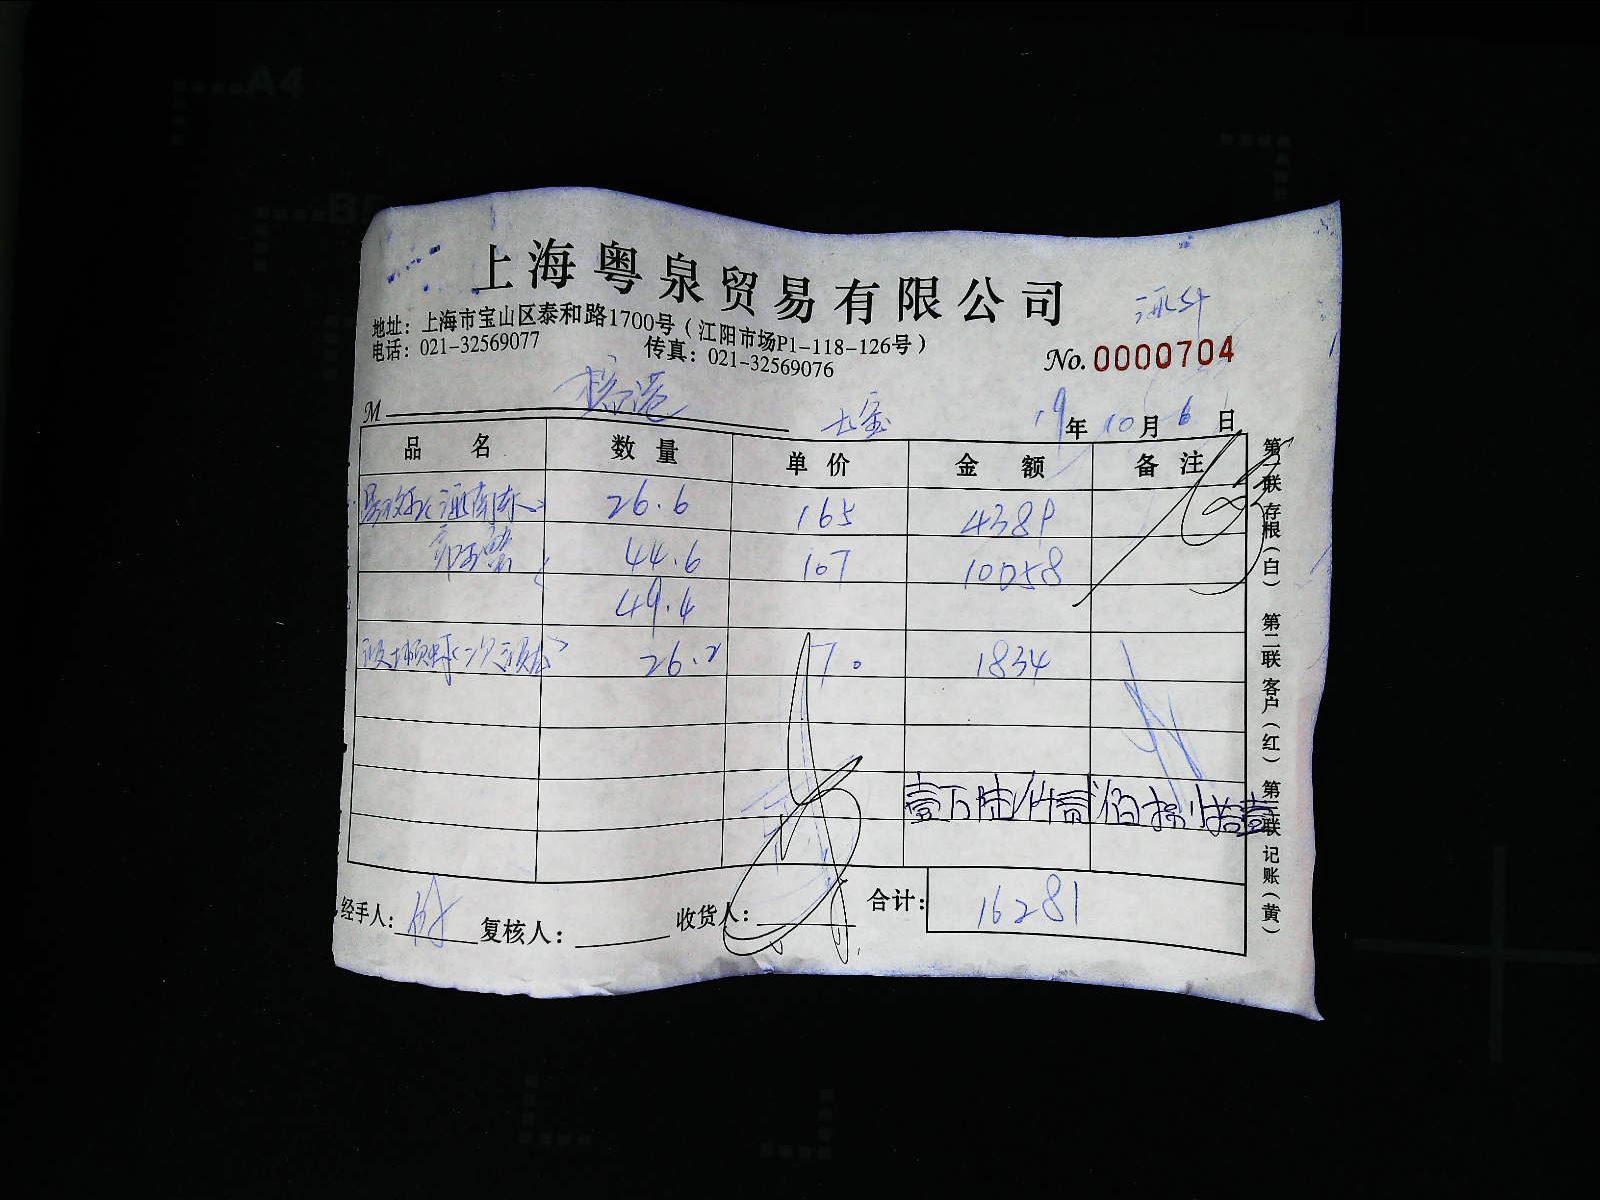 A4
上海粤泉贸易有限公司
地址：上海市宝山区泰和路1700号（江阳市场P1-118-126号）
电话：021-32569077 传真：021-32569076
No.0000704
M
19年10月6日
品名 数量 单价 金额 备注
26.6 165 4389
44.6 107 10058
49.4
26.2 70 1834
壹万陆仟贰佰捌拾壹
经手人： 复核人： 收货人： 合计：16281
第一联存根（白）
第二联客户（红）
第三联记账（黄）